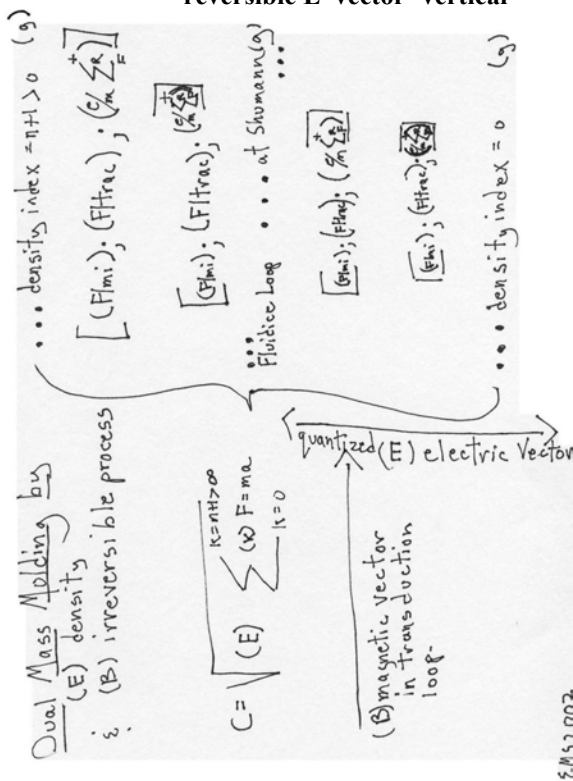 reversible E vector vertical
Dual Mass Molding by
(E) density
& (B) irreversible process
C = √(E) ∑ (k) F=ma
k=n+1>∞
k=0
(B) magnetic vector
in transduction
loop-
quantized (E) electric Vector
... density index = n+1>0 (g)
[(F/mi); (F/trac); (c/m ∑ R/F +)]
[(F/mi); (F/trac); (c/m ∑ R/F +)]
... Fluidice Loop .... at Shumann(g) ...
[(F/mi); (F/trac); (c/m ∑ R/F +)]
[(F/mi); (F/trac); (c/m ∑ R/F +)]
... density index = 0 (g)